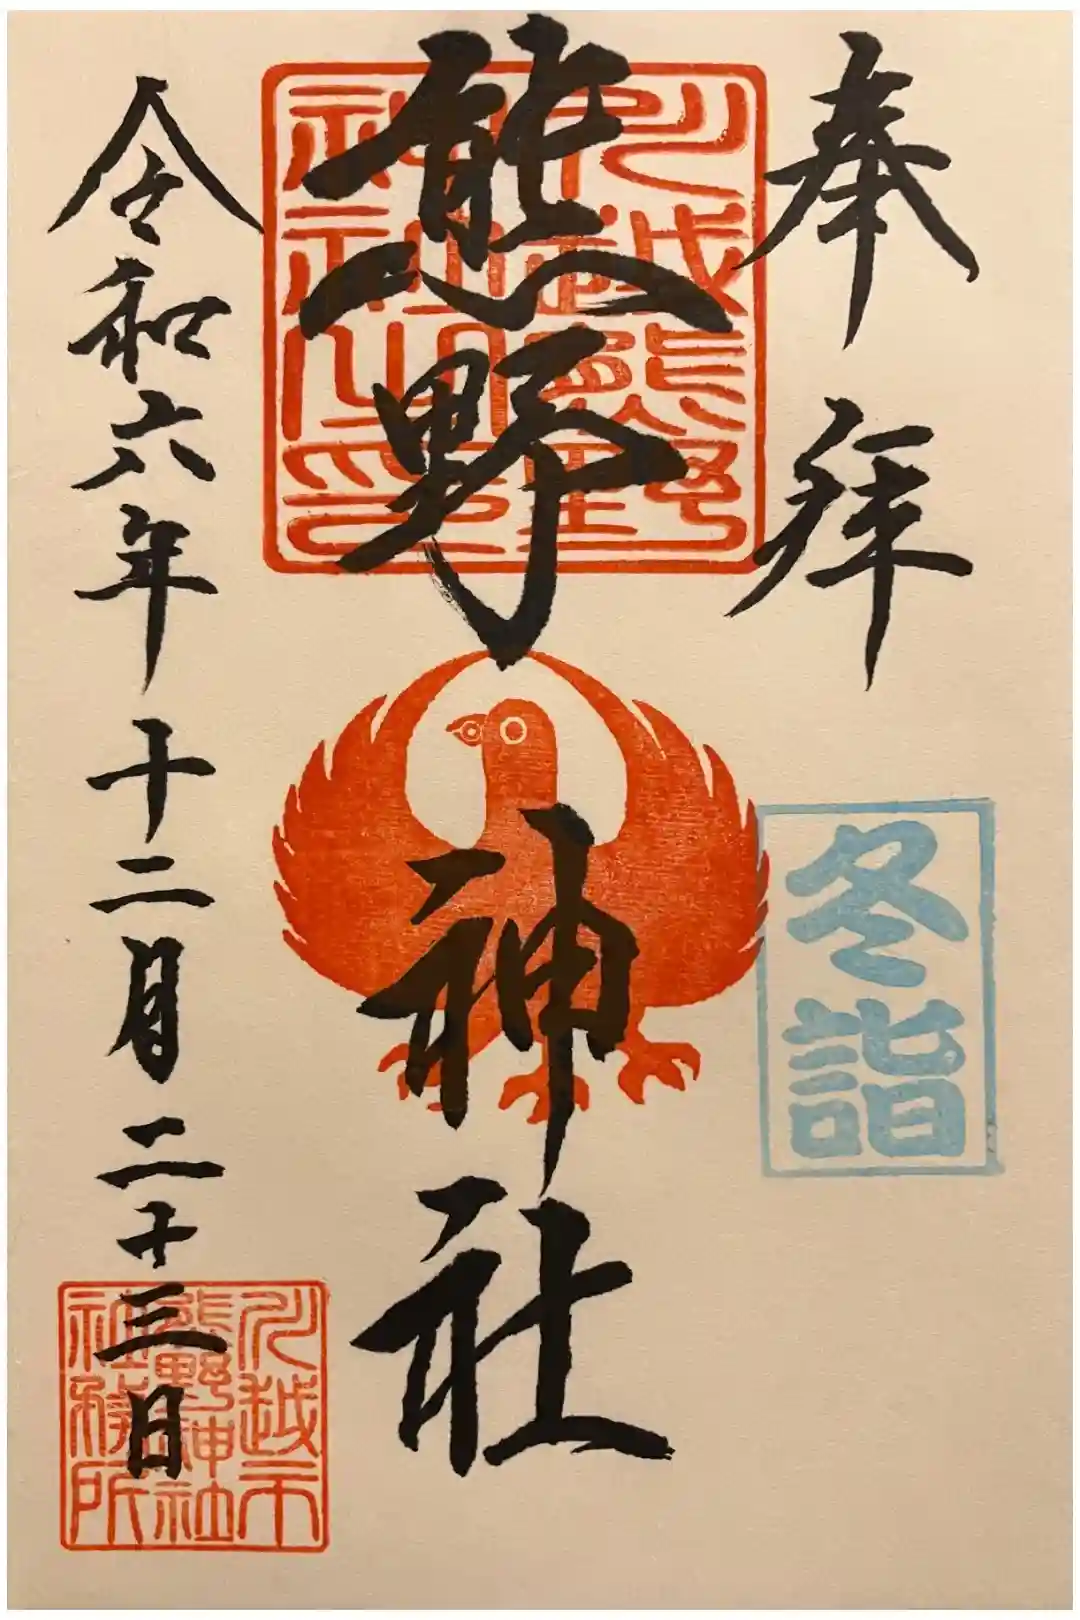 奉拝
冬詣
熊野神社
川越熊野
神社之印
令和六年十二月二十三日
川越市
熊野神社
社務所